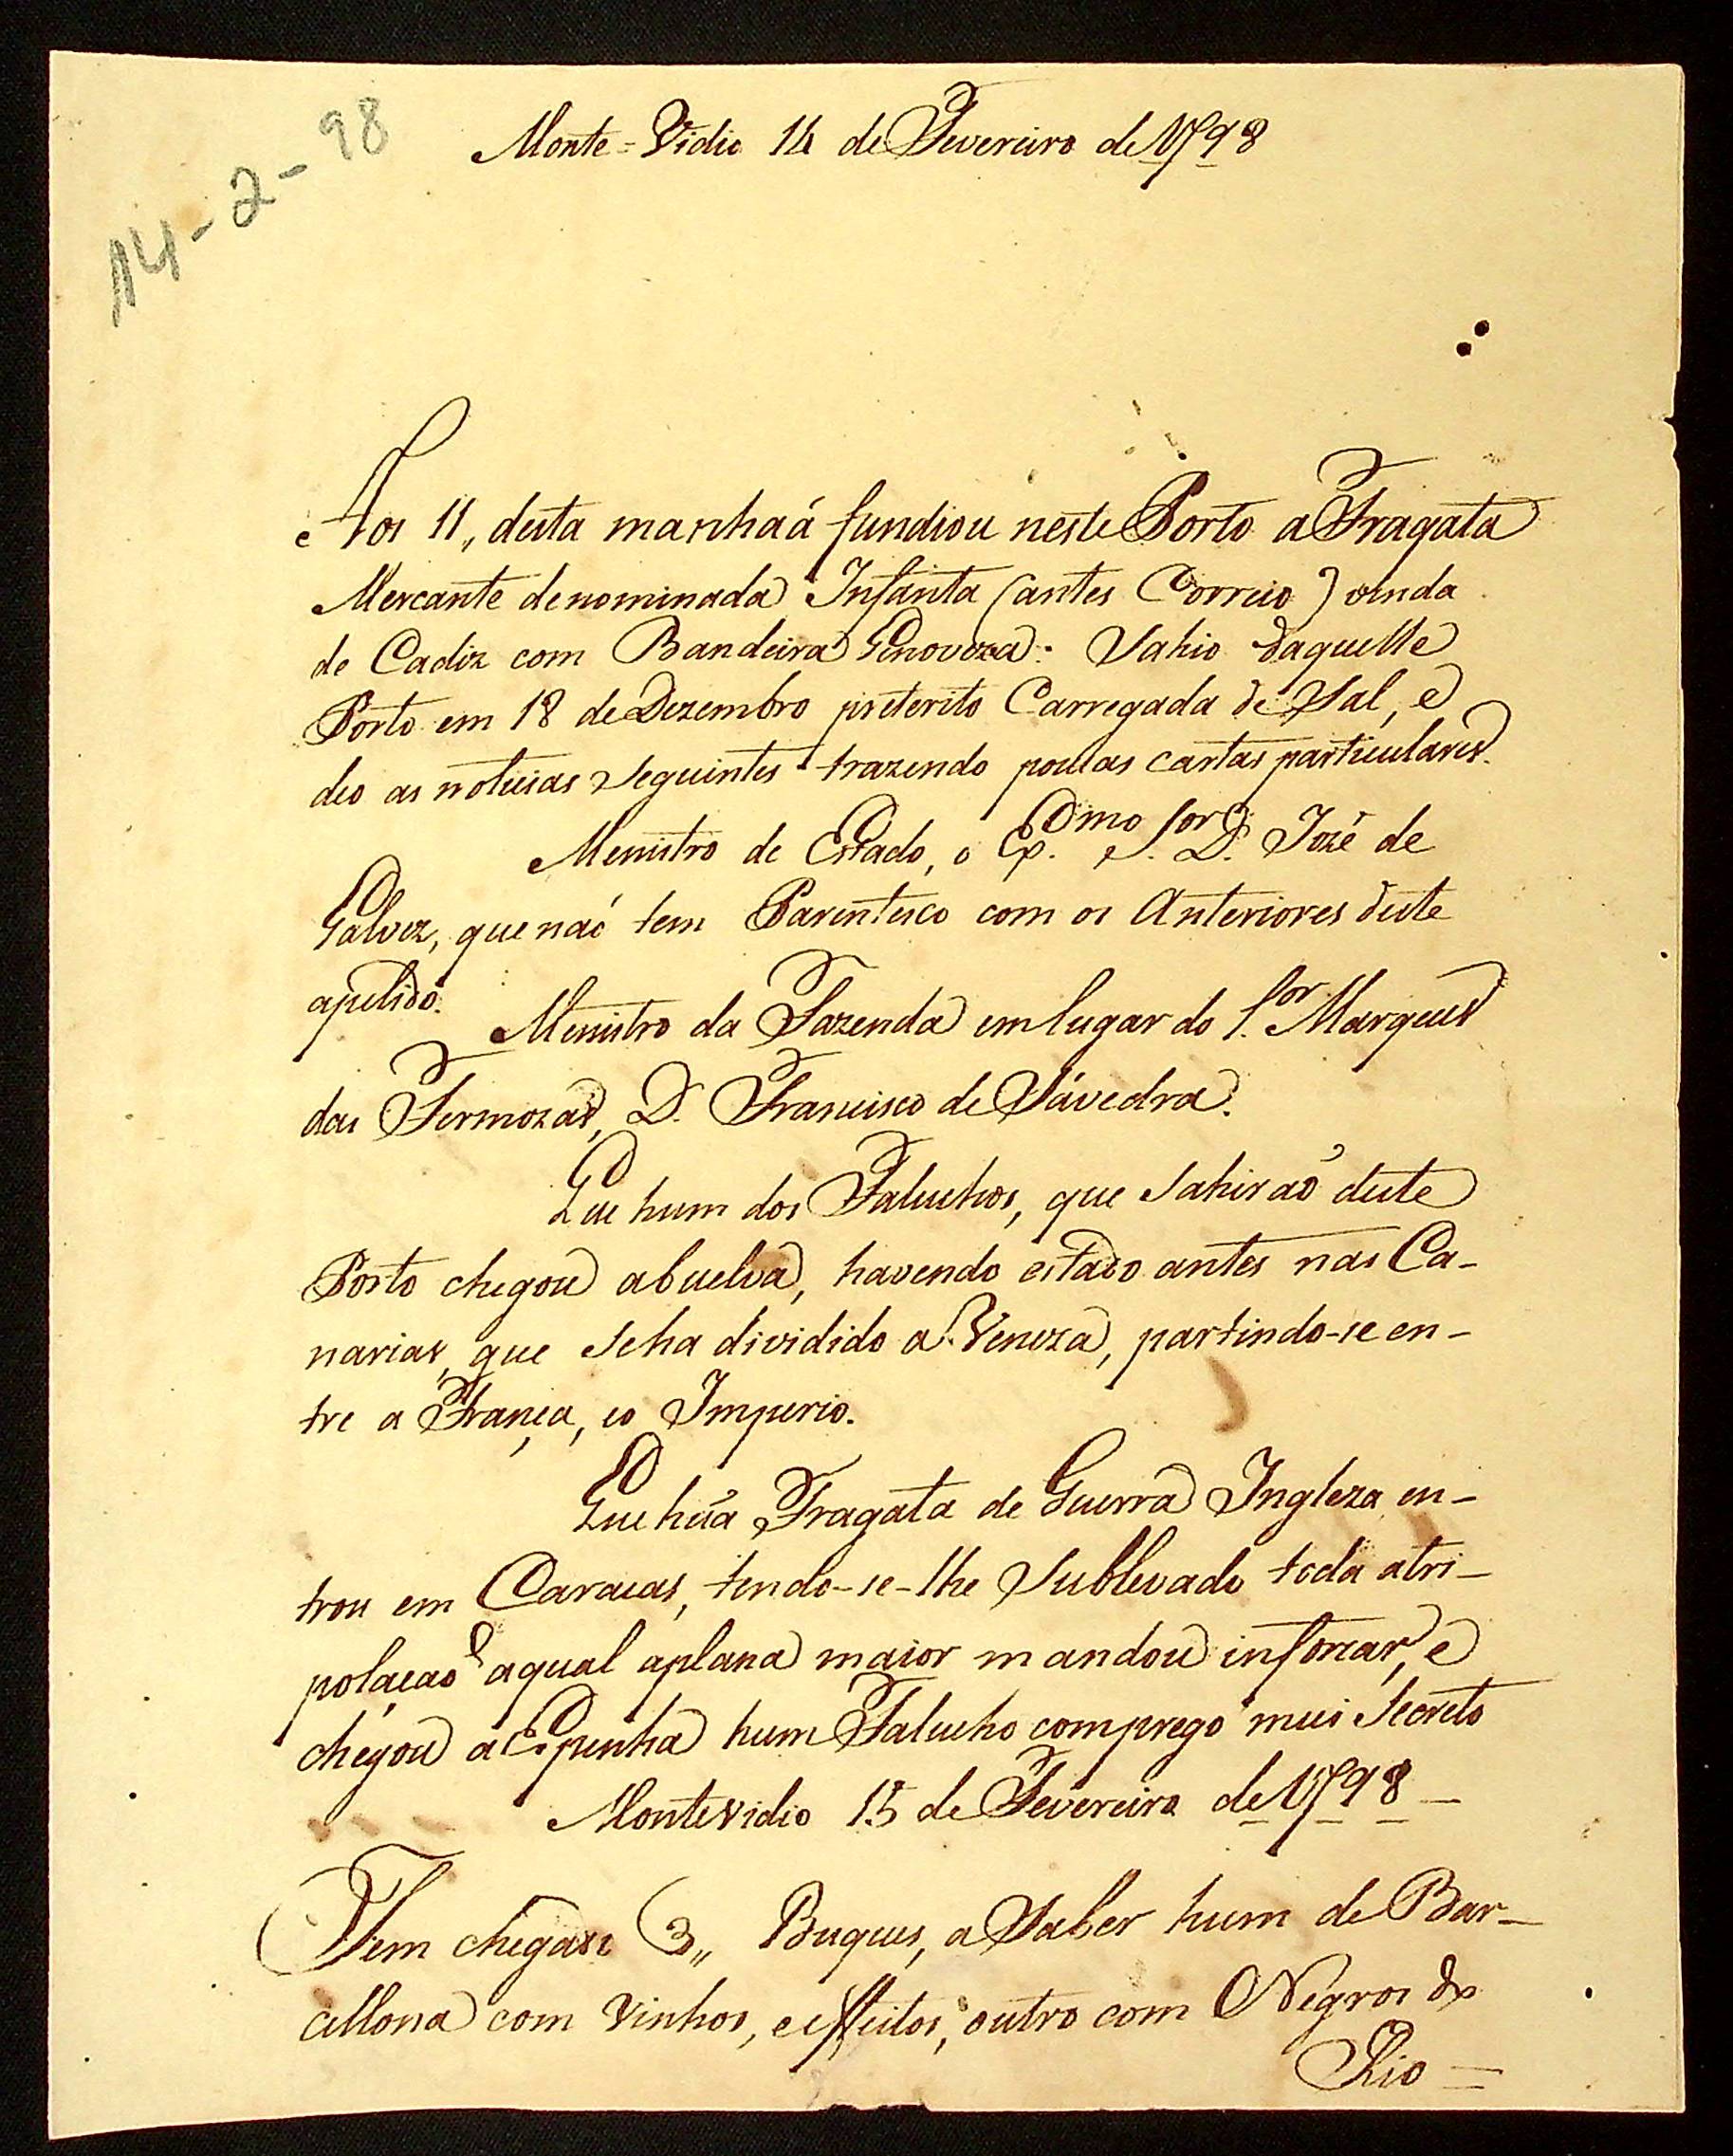 14-2-98
Monte=Vidio 14 de Fevereiro de 1798
Aos 11,, desta manhaá fundiou neste Porto a Fragata
Mercante denominada Infanta (antes Correio) vinda
de Cadiz com Bandeira Genoveza: Sahio daquelle
Porto em 18 de Dezembro preterito Carregada de Sal, e
deo as noticias seguintes trazendo poucas cartas particulares.
Menistro de Estado, o Ex.mo S.or D. Jozé de
Galvez, que naó tem Parentesco com os Anteriores deste
apelido.
Menistro da Fazenda em lugar do S.or Marques
das Formozas, D. Francisco de Sávedra.
Que hum dos Faluchos, que Sahiraó deste
Porto chegou abuelva, havendo estado antes nas Ca-
narias, que seha dividido a Veneza, partindo-se en-
tre a França, eo Imperio.
Que húa Fragata de Guerra Ingleza en-
trou em Caracas, tendo-se-lhe Sublevado toda atri-
polaçaó aqual aplana maior mandou inforcar, e
chegou á Espanha hum Falucho comprego mui Secreto
Montevidio 15 de Fevereiro de 1798
Tem chegado 3,, Buques, a Saber hum de Bar-
cellona com Vinhos, e effeitos, outro com Negros do
Rio =